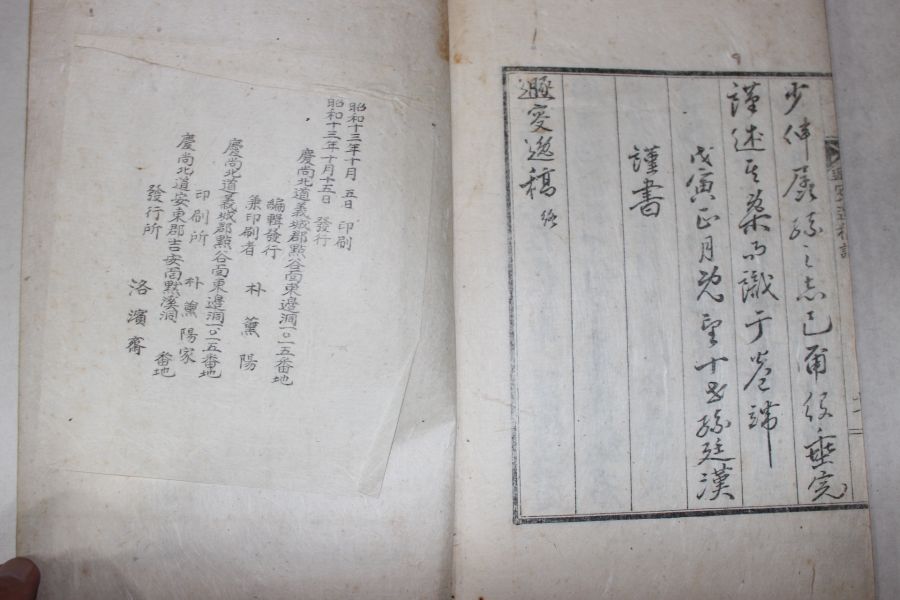 少伸孱孫之志已爾役垂完
謹述其槩而識于卷端
戊寅正月既望十世孫廷漢
謹書
遯安逸稿 終
昭和十三年十月 五日 印刷
昭和十三年十月十五日 發行
慶尚北道義城郡點谷面東邊洞一〇一五番地
編輯發行
兼印刷者 朴薰陽
慶尚北道義城郡點谷面東邊洞一〇一五番地
印刷所 朴薰陽家
慶尚北道安東郡吉安面默溪洞 番地
發行所 洛濱齋